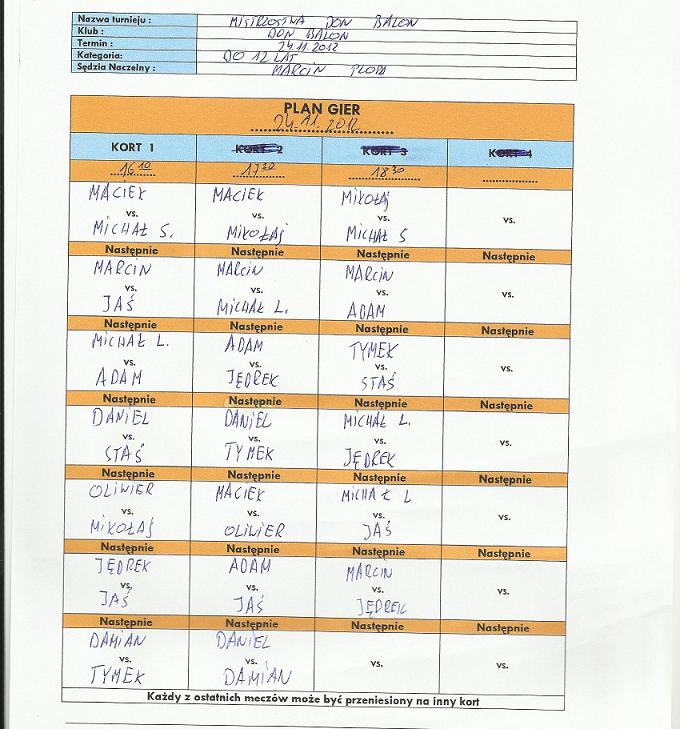 Nazwa turnieju : MISTRZOSTWA DON BALON
Klub : DON BALON
Termin : 24.11.2012
Kategoria: DO 12 LAT
Sędzia Naczelny : MARCIN
PLAN GIER
24.11.2012
KORT 1 KORT 2 KORT 3 KORT 4
16 10 17 20 18 30
MACIEK MACIEK MIKOŁAJ
vs. vs. vs. vs.
MICHAŁ S. MIKOŁAJ MICHAŁ S
Następnie Następnie Następnie Następnie
MARCIN MARCIN MARCIN
vs. vs. vs. vs.
JAŚ MICHAŁ L. ADAM
Następnie Następnie Następnie Następnie
MICHAŁ L. ADAM TYMEK
vs. vs. vs. vs.
ADAM JĘDREK STAŚ
Następnie Następnie Następnie Następnie
DANIEL DANIEL MICHAŁ L.
vs. vs. vs. vs.
STAŚ TYMEK JĘDREK
Następnie Następnie Następnie Następnie
OLIWIER MACIEK MICHAŁ L
vs. vs. vs. vs.
MIKOŁAJ OLIWIER JAŚ
Następnie Następnie Następnie Następnie
JĘDREK ADAM MARCIN
vs. vs. vs. vs.
JAŚ JAŚ JĘDREK
Następnie Następnie Następnie Następnie
DAMIAN DANIEL
vs. vs. vs. vs.
TYMEK DAMIAN
Każdy z ostatnich meczów może być przeniesiony na inny kort